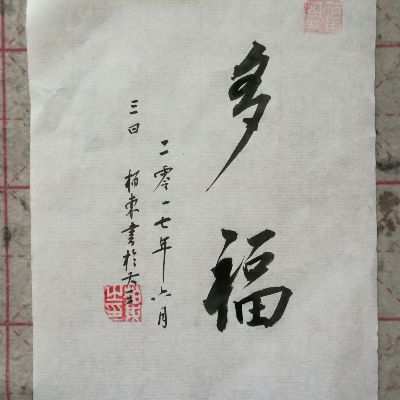 多福
二零一七年六月
三日 栢東書於